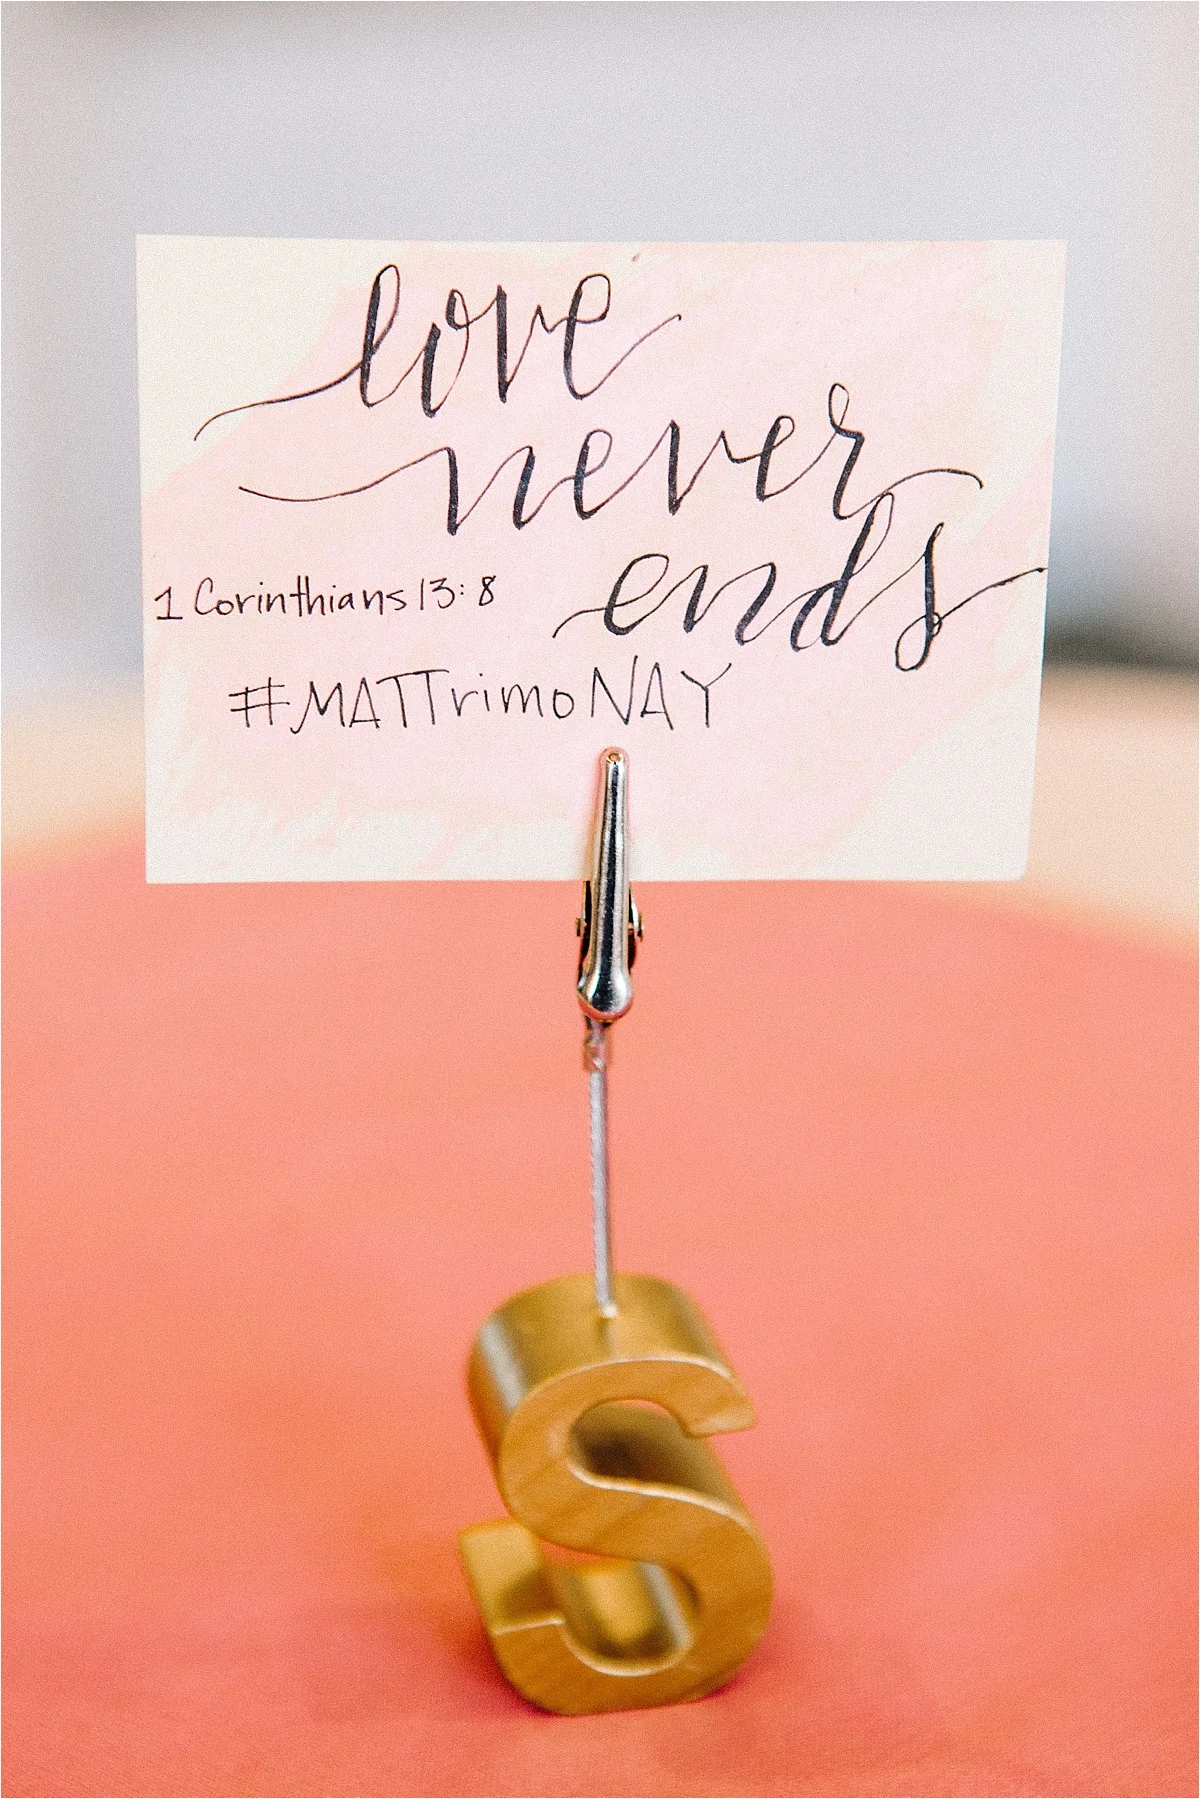 love
never
ends
1 Corinthians 13:8
#MATTrimoNAY
S